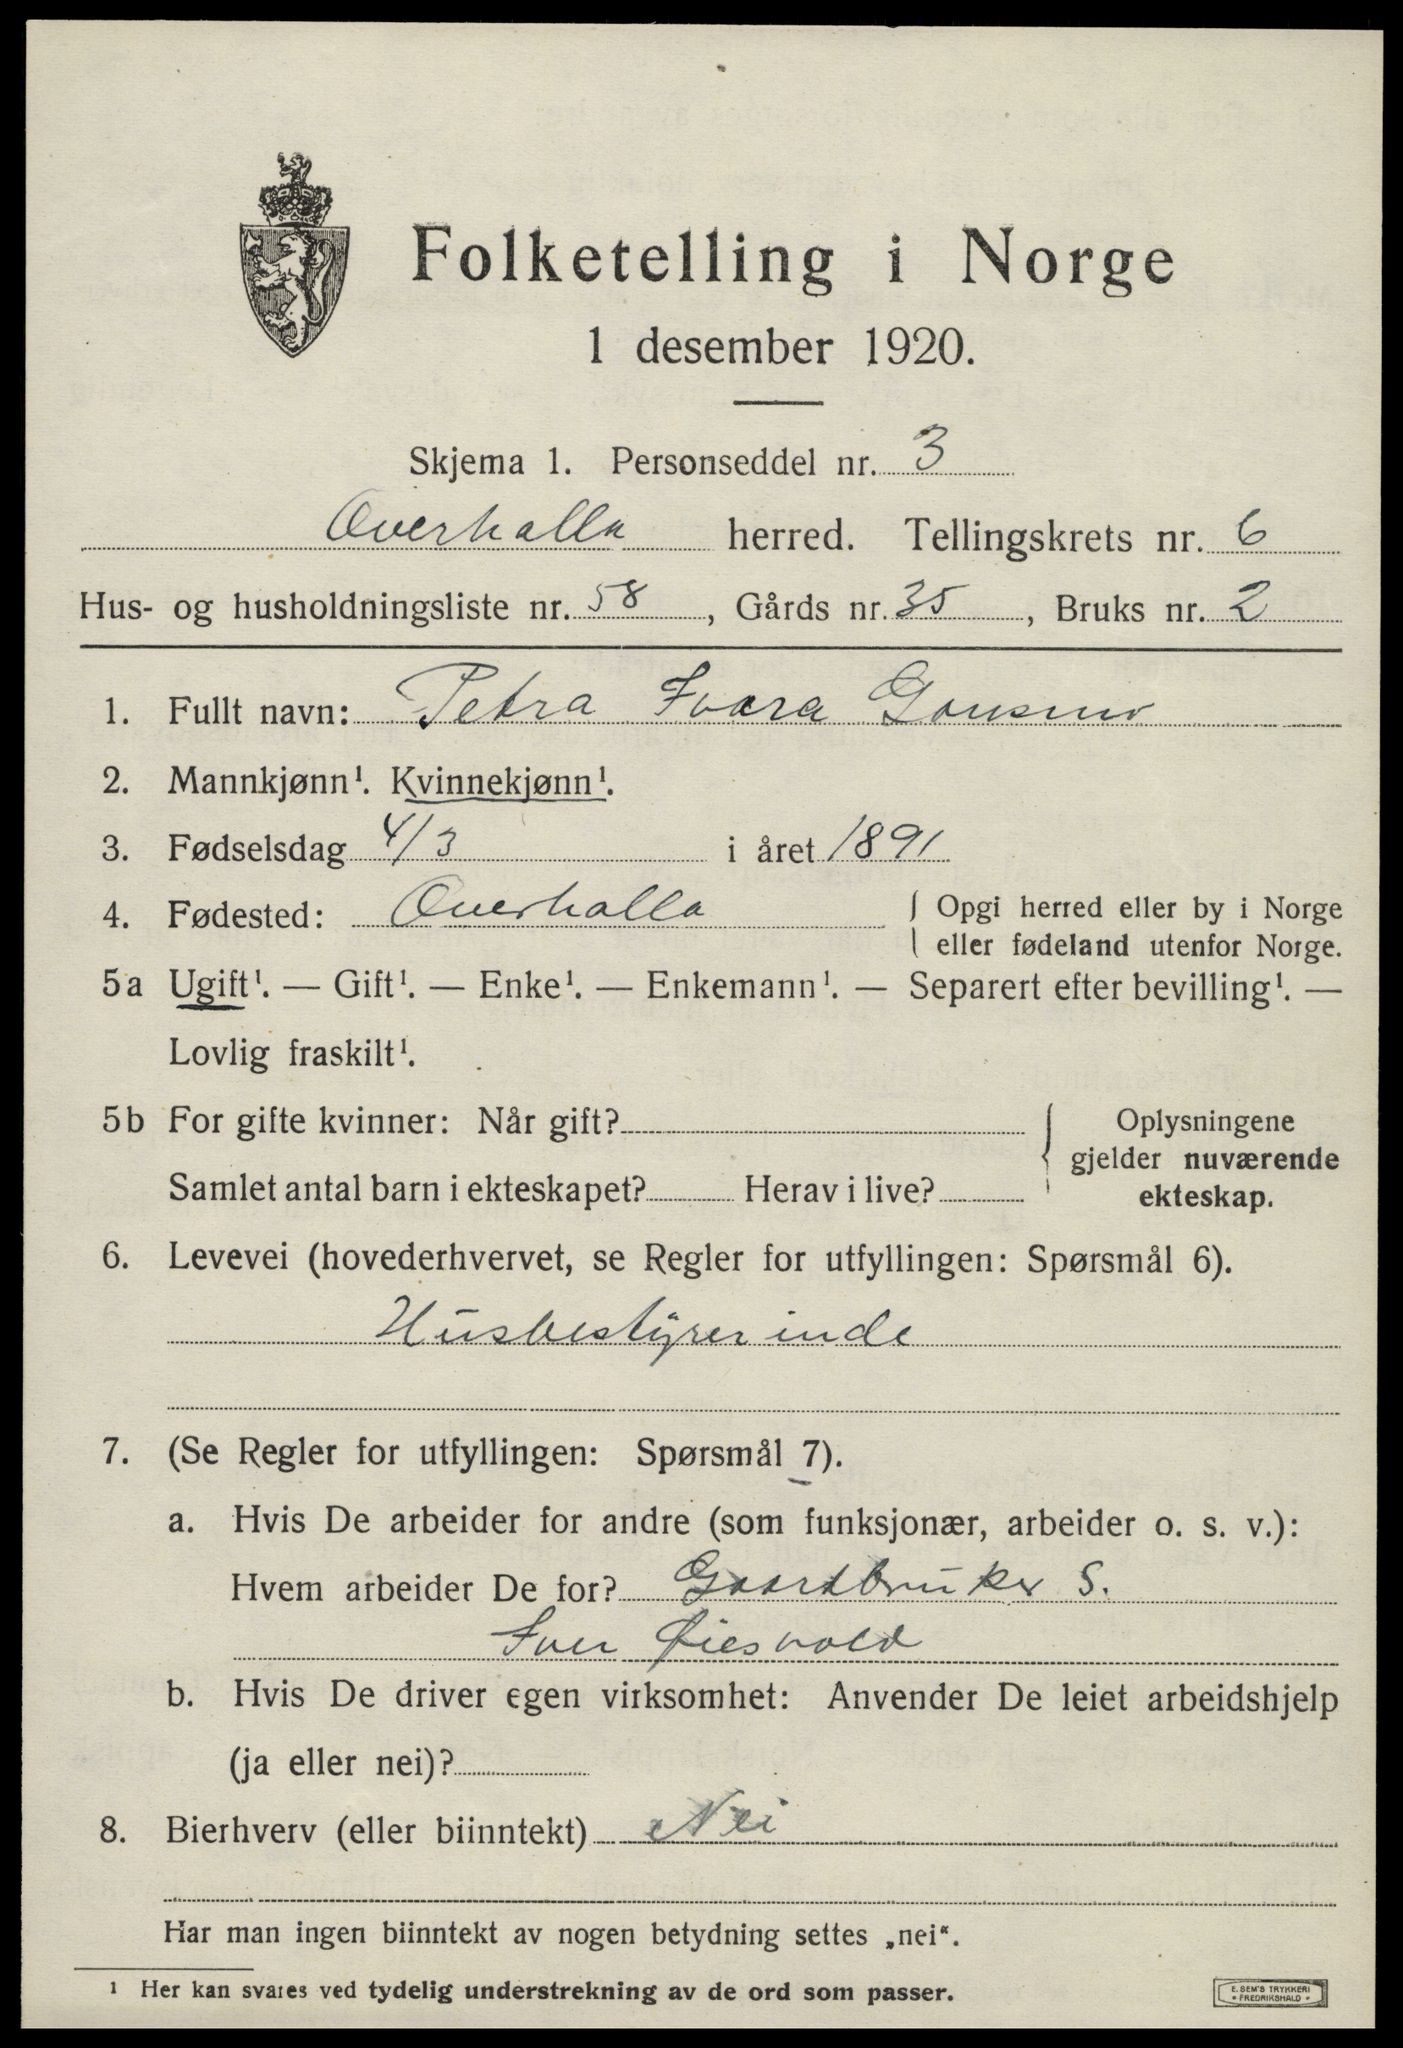 Folketelling i Norge
1 desember 1920.
Skjema 1. Personseddel nr. 3
Overhalla herred. Tellingskrets nr. 6
Hus- og husholdningsliste nr. 58, Gårds nr. 35, Bruks nr. 2
1. Fullt navn: Petra Ivara Gansmo
2. Mannkjønn¹. Kvinnekjønn¹.
3. Fødselsdag 4/3 i året 1891
4. Fødested: Overhalla { Opgi herred eller by i Norge
eller fødeland utenfor Norge.
5a Ugift¹. — Gift¹. — Enke¹. — Enkemann¹. — Separert efter bevilling¹. —
Lovlig fraskilt¹.
5b For gifte kvinner: Når gift?
Samlet antal barn i ekteskapet? Herav i live?
Oplysningene
gjelder nuværende
ekteskap.
6. Levevei (hovederhvervet, se Regler for utfyllingen: Spørsmål 6).
Husbestyrerinde
7. (Se Regler for utfyllingen: Spørsmål 7).
a. Hvis De arbeider for andre (som funksjonær, arbeider o. s. v.):
Hvem arbeider De for? Gaardbruker S.
Iver Øiesvold
b. Hvis De driver egen virksomhet: Anvender De leiet arbeidshjelp
(ja eller nei)?
8. Bierhverv (eller biinntekt) Nei
Har man ingen biinntekt av nogen betydning settes „nei“.
¹ Her kan svares ved tydelig understrekning av de ord som passer.
E. SEM'S TRYKKERI
• FREDRIKSHALD •